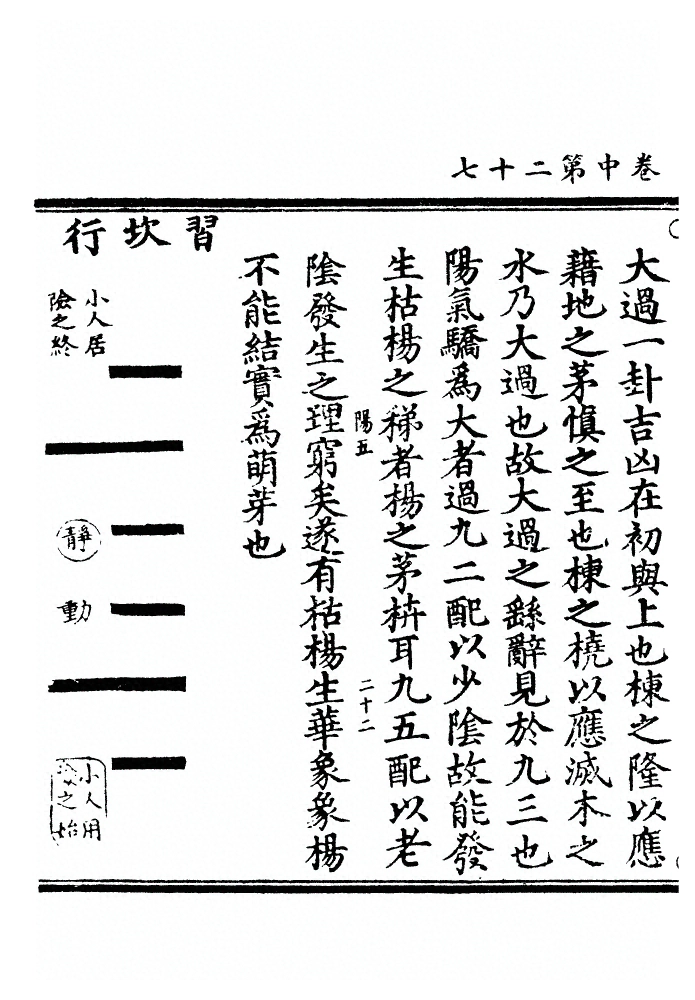 卷中第二十七
大過一卦吉凶在初與上也棟之隆以應
藉地之茅慎之至也棟之橈以應滅木之
水乃大過也故大過之繇辭見於九三也
陽氣驕為大者過九二配以少陰故能發
生枯楊之稊者楊之茅枿耳九五配以老
陽五
二十二
陰發生之理窮矣遂有枯楊生華象象楊
不能結實為萌芽也
習坎行
小人居
險之終
靜
動
小人用
之始